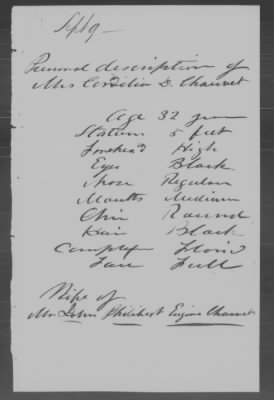 Sept 9 —
Personal description of
Mrs Cordilia D. Chauvet
Age 32 years
Stature 5 feet
Forehead High
Eyes Black
Nose Regular
Mouth Medium
Chin Round
Hair Black
Complex Florid
Face Full
Wife of
Mr John Philibert Eugene Chauvet